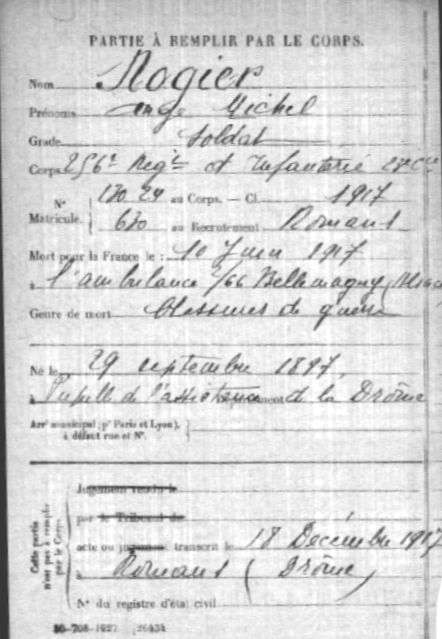 PARTIE À REMPLIR PAR LE CORPS.
Nom Rogier
Prénoms Ange Michel
Grade Soldat
Corps 256e Regt d'Infanterie
N° 13024 au Corps. — Cl. 1917
Matricule. 630 au Recrutement Romans
Mort pour la France le : 10 Juin 1917
à l'ambulance 2/66 Bellemagny (Alsace
Genre de mort blessures de guerre
Né le 29 septembre 1897
à Pupille de l'assistance de la Drôme
Arrt municipal (pr Paris et Lyon), à défaut rue et N°.
Cette partie n'est pas à remplir par le Corps.
Jugement rendu le
par le Tribunal de
acte ou jugement transcrit le 18 Décembre 1917
à Romans (Drôme)
N° du registre d'état civil
30-708-1922. [26434]